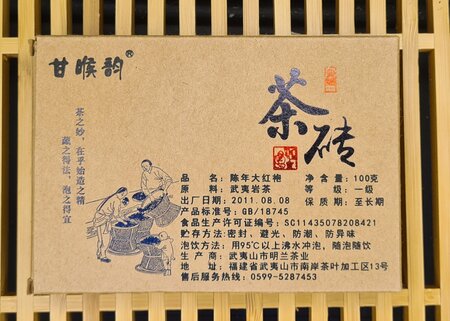 甘喉韵®
茶砖
茶之妙，在乎始造之精
蔬之得法，泡之得宜
品　　名：陈年大红袍　净 含 量：100克
原　　料：武夷岩茶　等　　级：一级
出厂日期：2011.08.08　保 质 期：至长期
产品标准号：GB/18745
食品生产许可证编号：SC11435078208421
贮存方法：密封、避光、防潮、防异味
泡饮方法：用95℃以上沸水冲泡，随泡随饮
生 产 商：武夷山市明兰茶业
地　　址：福建省武夷山市南岸茶叶加工区13号
售后服务热线：0599-5287453